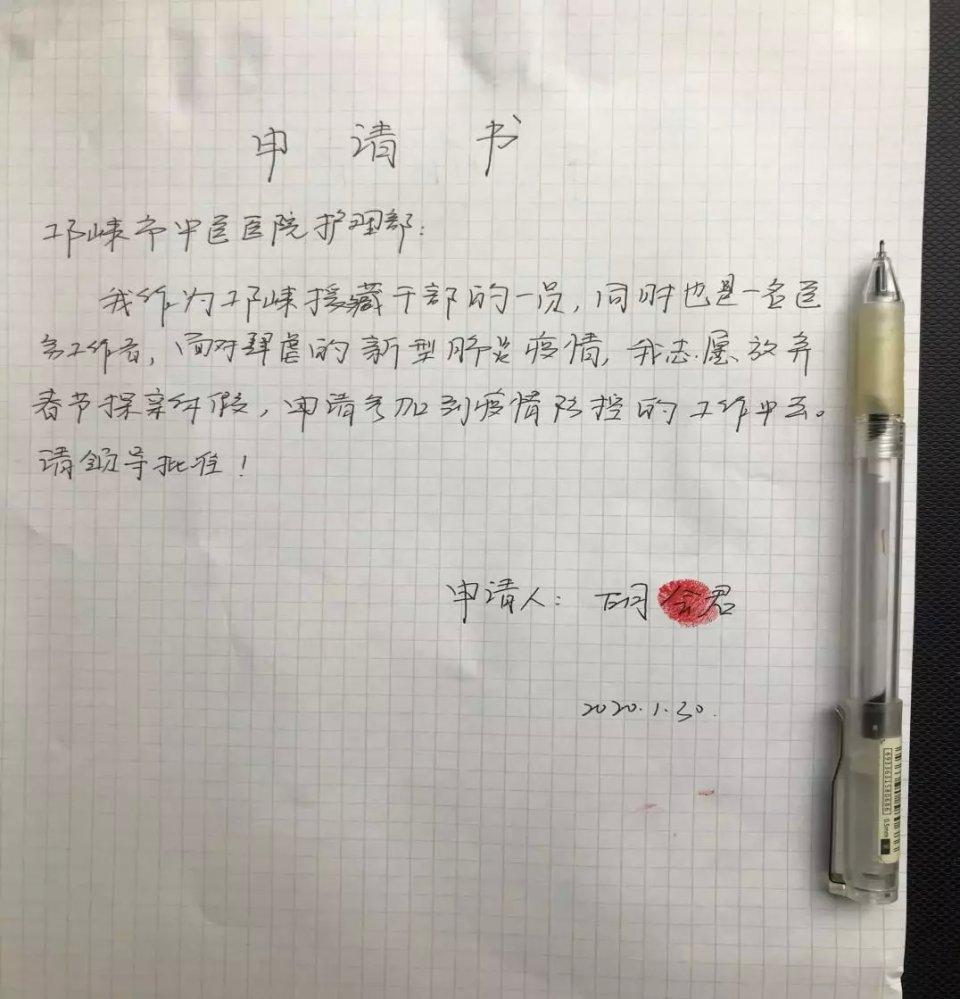 申请书
邛崃市中医医院护理部:
我作为邛崃援藏干部的一员,同时也是一名医
务工作者,面对肆虐的新型肺炎疫情,我志愿放弃
春节探亲年假,申请参加到疫情防控的工作中去。
请领导批准!
申请人: 会君
2020.1.30.
6933631580686
0.5mm